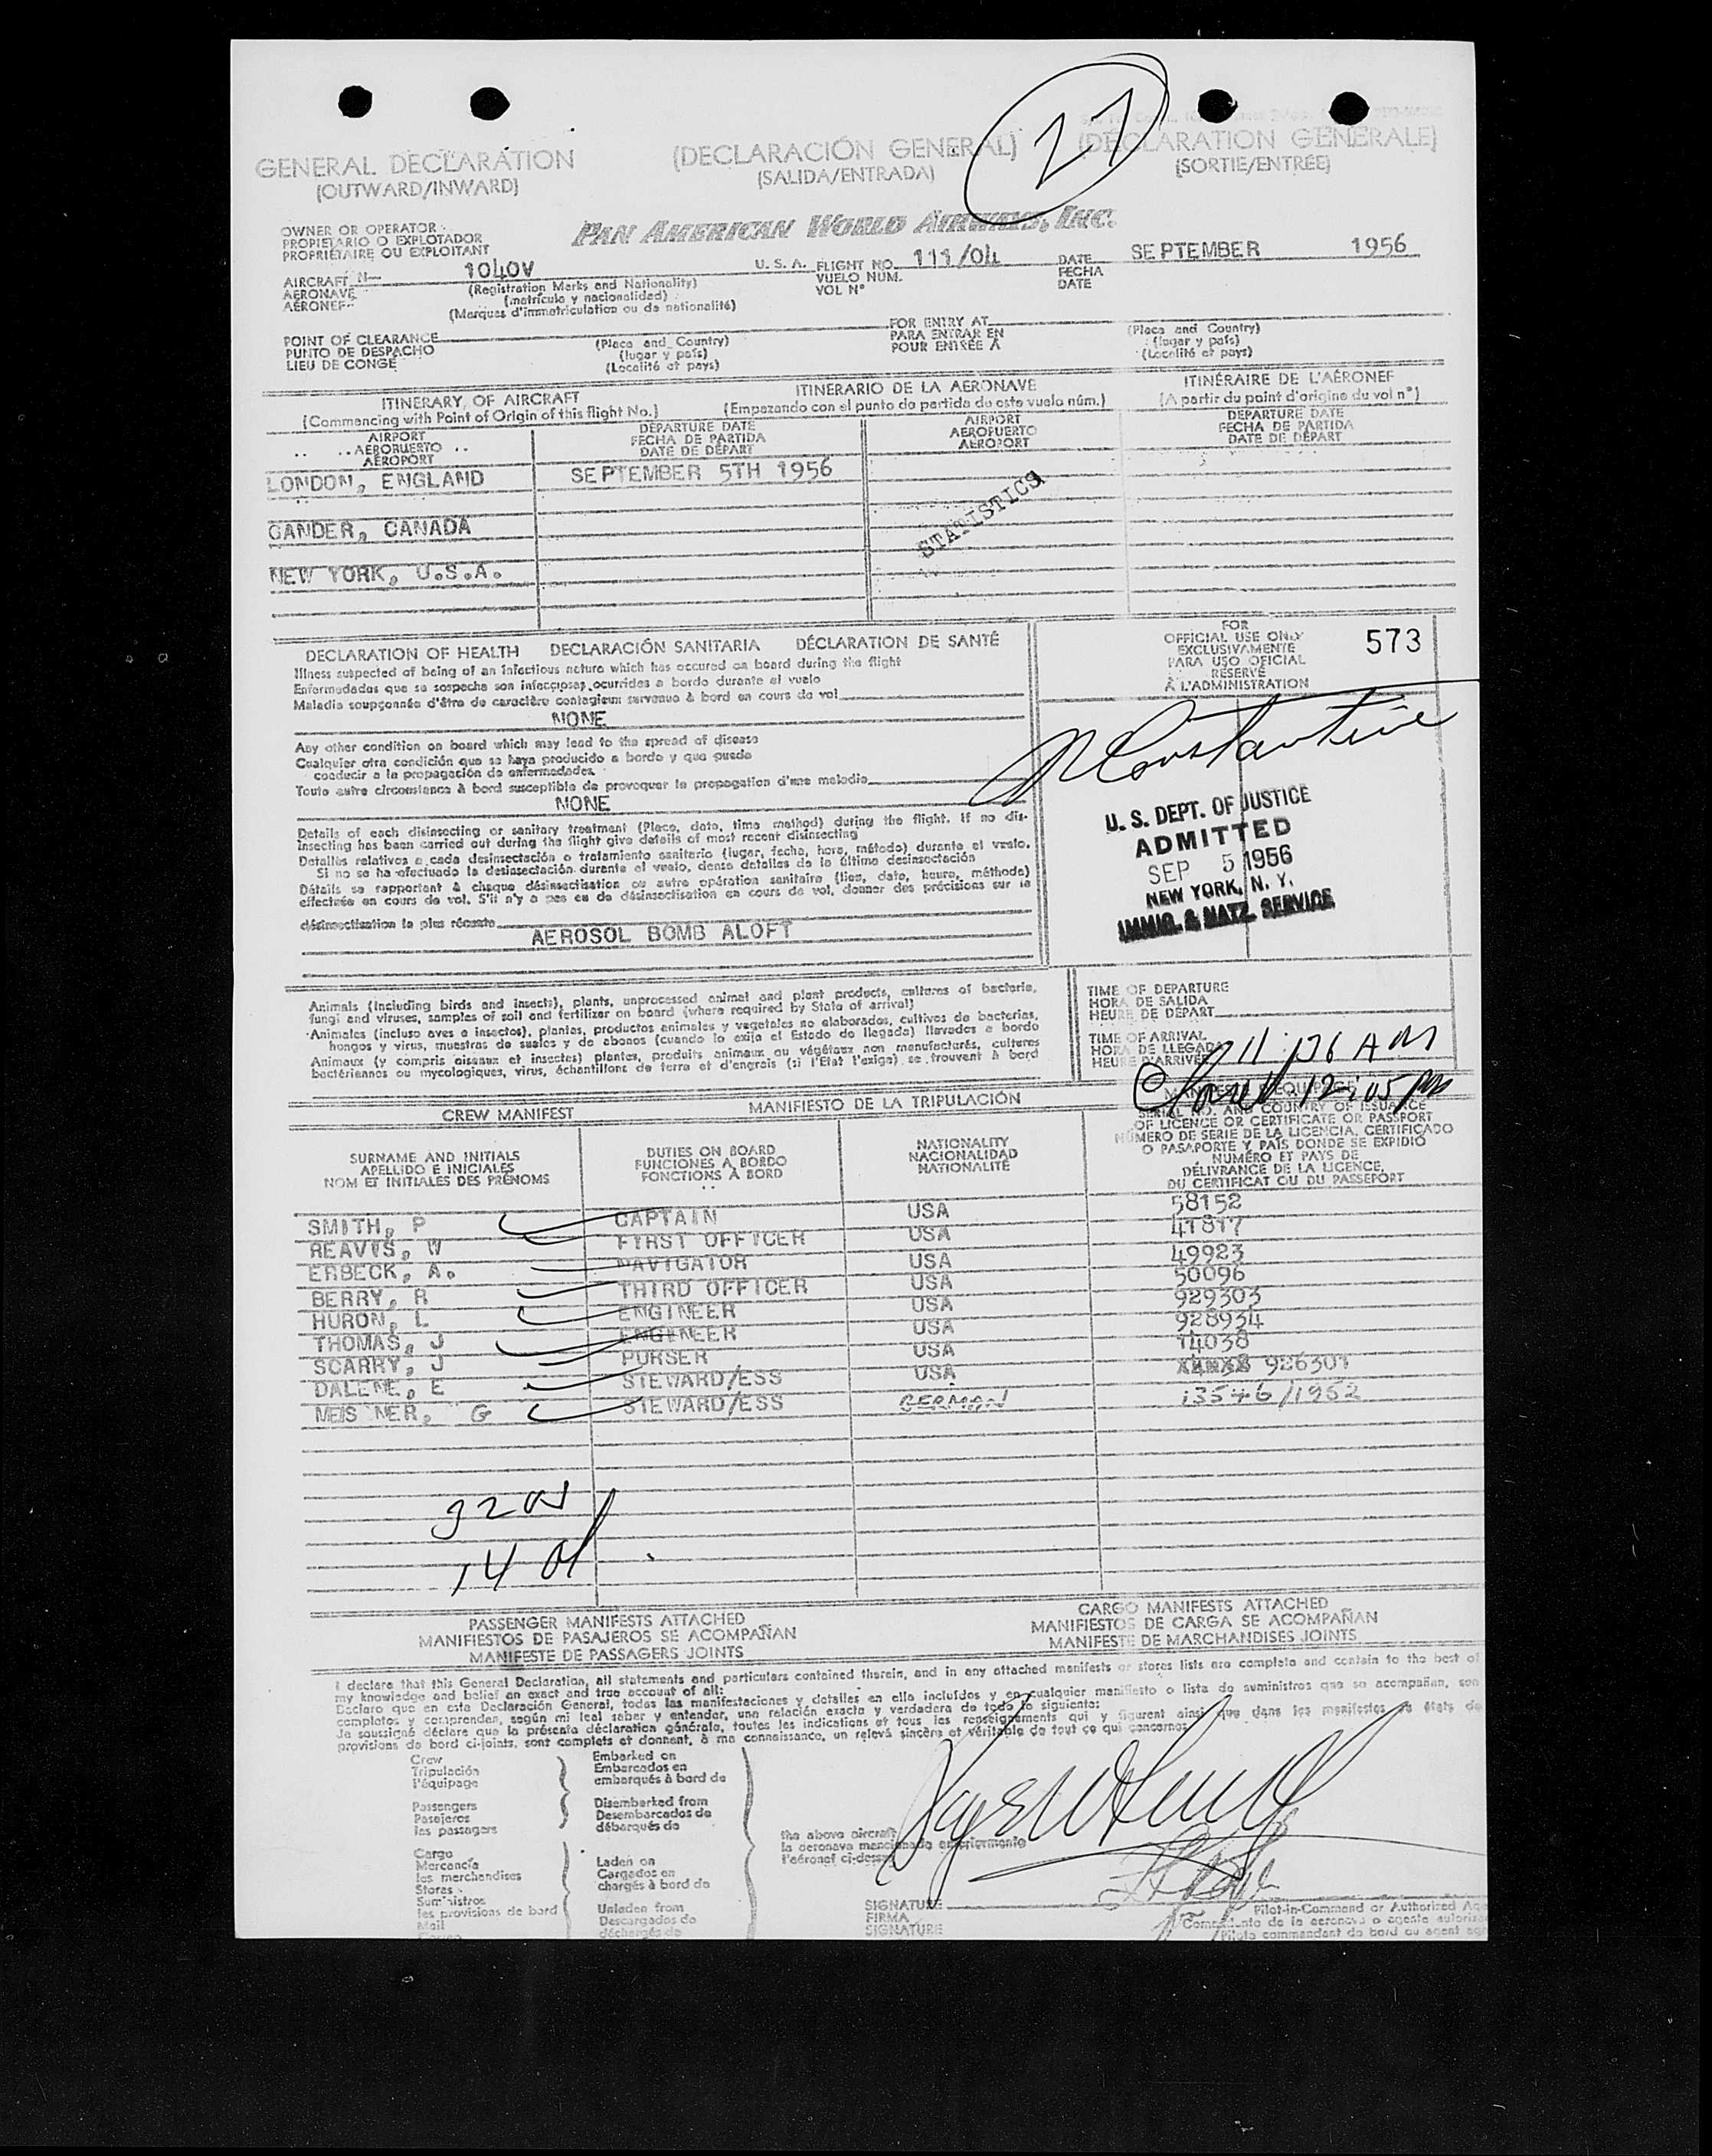 GENERAL DECLARATION
(OUTWARD/INWARD)
(DECLARACIÓN GENERAL)
(SALIDA/ENTRADA)
(DÉCLARATION GÉNÉRALE)
(SORTIE/ENTRÉE)
OWNER OR OPERATOR
PROPIETARIO O EXPLOTADOR
PROPRIÉTAIRE OU EXPLOITANT
PAN AMERICAN WORLD AIRWAYS, INC.
AIRCRAFT N— 1040V U. S. A. FLIGHT NO. 111/04 DATE SEPTEMBER 1956
AERONAVE (Registration Marks and Nationality) VUELO NÚM. FECHA
AÉRONEF (matrícula y nacionalidad) VOL N° DATE
(Marques d'immatriculation ou de nationalité)
POINT OF CLEARANCE (Place and Country) FOR ENTRY AT (Place and Country)
PUNTO DE DESPACHO (lugar y país) PARA ENTRAR EN (lugar y país)
LIEU DE CONGÉ (Localité et pays) POUR ENTRÉE À (Localité et pays)
ITINERARY OF AIRCRAFT ITINERARIO DE LA AERONAVE ITINÉRAIRE DE L'AÉRONEF
(Commencing with Point of Origin of this flight No.) (Empezando con el punto de partida de este vuelo núm.) (A partir du point d'origine du vol n°)
AIRPORT DEPARTURE DATE AIRPORT DEPARTURE DATE
AEROPUERTO FECHA DE PARTIDA AEROPUERTO FECHA DE PARTIDA
AÉROPORT DATE DE DÉPART AÉROPORT DATE DE DÉPART
LONDON, ENGLAND SEPTEMBER 5TH 1956
STATISTICS
GANDER, CANADA
NEW YORK, U.S.A.
DECLARATION OF HEALTH DECLARACIÓN SANITARIA DÉCLARATION DE SANTÉ
Illness suspected of being of an infectious nature which has occured on board during the flight
Enfermedades que se sospecha son infecciosas ocurridas a bordo durante el vuelo
Maladie soupçonnée d'être de caractère contagieux survenue à bord en cours de vol
NONE
Any other condition on board which may lead to the spread of disease
Cualquier otra condición que se haya producido a bordo y que puede
conducir a la propagación de enfermedades
Toute autre circonstance à bord susceptible de provoquer la propagation d'une maladie
NONE
Details of each disinsecting or sanitary treatment (Place, date, time method) during the flight. If no dis-
insecting has been carried out during the flight give details of most recent disinsecting
Detalles relativos a cada desinsectación o tratamiento sanitario (lugar, fecha, hora, método) durante el vuelo.
Si no se ha efectuado la desinsectación durante el vuelo, dense detalles de la última desinsectación
Détails se rapportant à chaque désinsectisation ou autre opération sanitaire (lieu, date, heure, méthode)
effectuée en cours de vol. S'il n'y a pas eu de désinsectisation en cours de vol, donner des précisions sur la
désinsectisation la plus récente
AEROSOL BOMB ALOFT
FOR
OFFICIAL USE ONLY
EXCLUSIVAMENTE
PARA USO OFICIAL
RÉSERVÉ
À L'ADMINISTRATION
573
U. S. DEPT. OF JUSTICE
ADMITTED
SEP 5 1956
NEW YORK, N. Y.
IMMIG. & NATZ. SERVICE
Animals (including birds and insects), plants, unprocessed animal and plant products, cultures of bacteria,
fungi and viruses, samples of soil and fertilizer on board (where required by State of arrival)
Animales (incluso aves e insectos), plantas, productos animales y vegetales no elaborados, cultivos de bacterias,
hongos y virus, muestras de suelos y de abonos (cuando lo exija el Estado de llegada) llevados a bordo
Animaux (y compris oiseaux et insectes) plantes, produits animaux ou végétaux non manufacturés, cultures
bactériennes ou mycologiques, virus, échantillons de terre et d'engrais (si l'Etat l'exige) se trouvent à bord
TIME OF DEPARTURE
HORA DE SALIDA
HEURE DE DÉPART
TIME OF ARRIVAL
HORA DE LLEGADA
HEURE D'ARRIVÉE
12:05 PM
CREW MANIFEST MANIFIESTO DE LA TRIPULACIÓN
SURNAME AND INITIALS
APELLIDO E INICIALES
NOM ET INITIALES DES PRÉNOMS
DUTIES ON BOARD
FUNCIONES A BORDO
FONCTIONS À BORD
NATIONALITY
NACIONALIDAD
NATIONALITÉ
SERIAL NO. AND COUNTRY OF ISSUANCE
OF LICENCE OR CERTIFICATE OR PASSPORT
NÚMERO DE SERIE DE LA LICENCIA, CERTIFICADO
O PASAPORTE Y PAÍS DONDE SE EXPIDIÓ
NUMÉRO ET PAYS DE
DÉLIVRANCE DE LA LICENCE,
DU CERTIFICAT OU DU PASSEPORT
SMITH, P CAPTAIN USA 58152
REAVIS, W FIRST OFFICER USA 41817
ERBECK, A. NAVIGATOR USA 49923
BERRY, R THIRD OFFICER USA 50096
HURON, L ENGINEER USA 929303
THOMAS, J ENGINEER USA 928934
SCARRY, J PURSER USA 14038
DALENE, E STEWARD/ESS USA 926301
MEIS NER, G STEWARD/ESS GERMAN 13546/1952
PASSENGER MANIFESTS ATTACHED
MANIFIESTOS DE PASAJEROS SE ACOMPAÑAN
MANIFESTE DE PASSAGERS JOINTS
CARGO MANIFESTS ATTACHED
MANIFIESTOS DE CARGA SE ACOMPAÑAN
MANIFESTE DE MARCHANDISES JOINTS
I declare that this General Declaration, all statements and particulars contained therein, and in any attached manifests or stores lists are complete and contain to the best of
my knowledge and belief an exact and true account of all:
Declaro que en esta Declaración General, todas las manifestaciones y detalles en ella incluídos y en cualquier manifiesto o lista de suministros que se acompañan, son
completos y comprenden, según mi leal saber y entender, una relación exacta y verdadera de todo lo siguiente:
Je soussigné déclare que la présente déclaration générale, toutes les indications et tous les renseignements qui y figurent ainsi que dans les manifestes ou états de
provisions de bord ci-joints, sont complets et donnent, à ma connaissance, un relevé sincère et véritable de tout ce qui concerne:
Crew
Tripulación
l'équipage
Embarked on
Embarcados en
embarqués à bord de
Passengers
Pasajeros
les passagers
Disembarked from
Desembarcados de
débarqués de
the above aircraft
la aeronave mencionada anteriormente
l'aéronef ci-dessus
Cargo
Mercancía
les merchandises
Stores
Suministros
les provisions de bord
Mail
Laden on
Cargados en
chargés à bord de
Unladen from
Descargados de
déchargés de
SIGNATURE
FIRMA
SIGNATURE
Pilot-in-Command or Authorized
de la aeronave o agente
Pilote commandant de bord ou agent